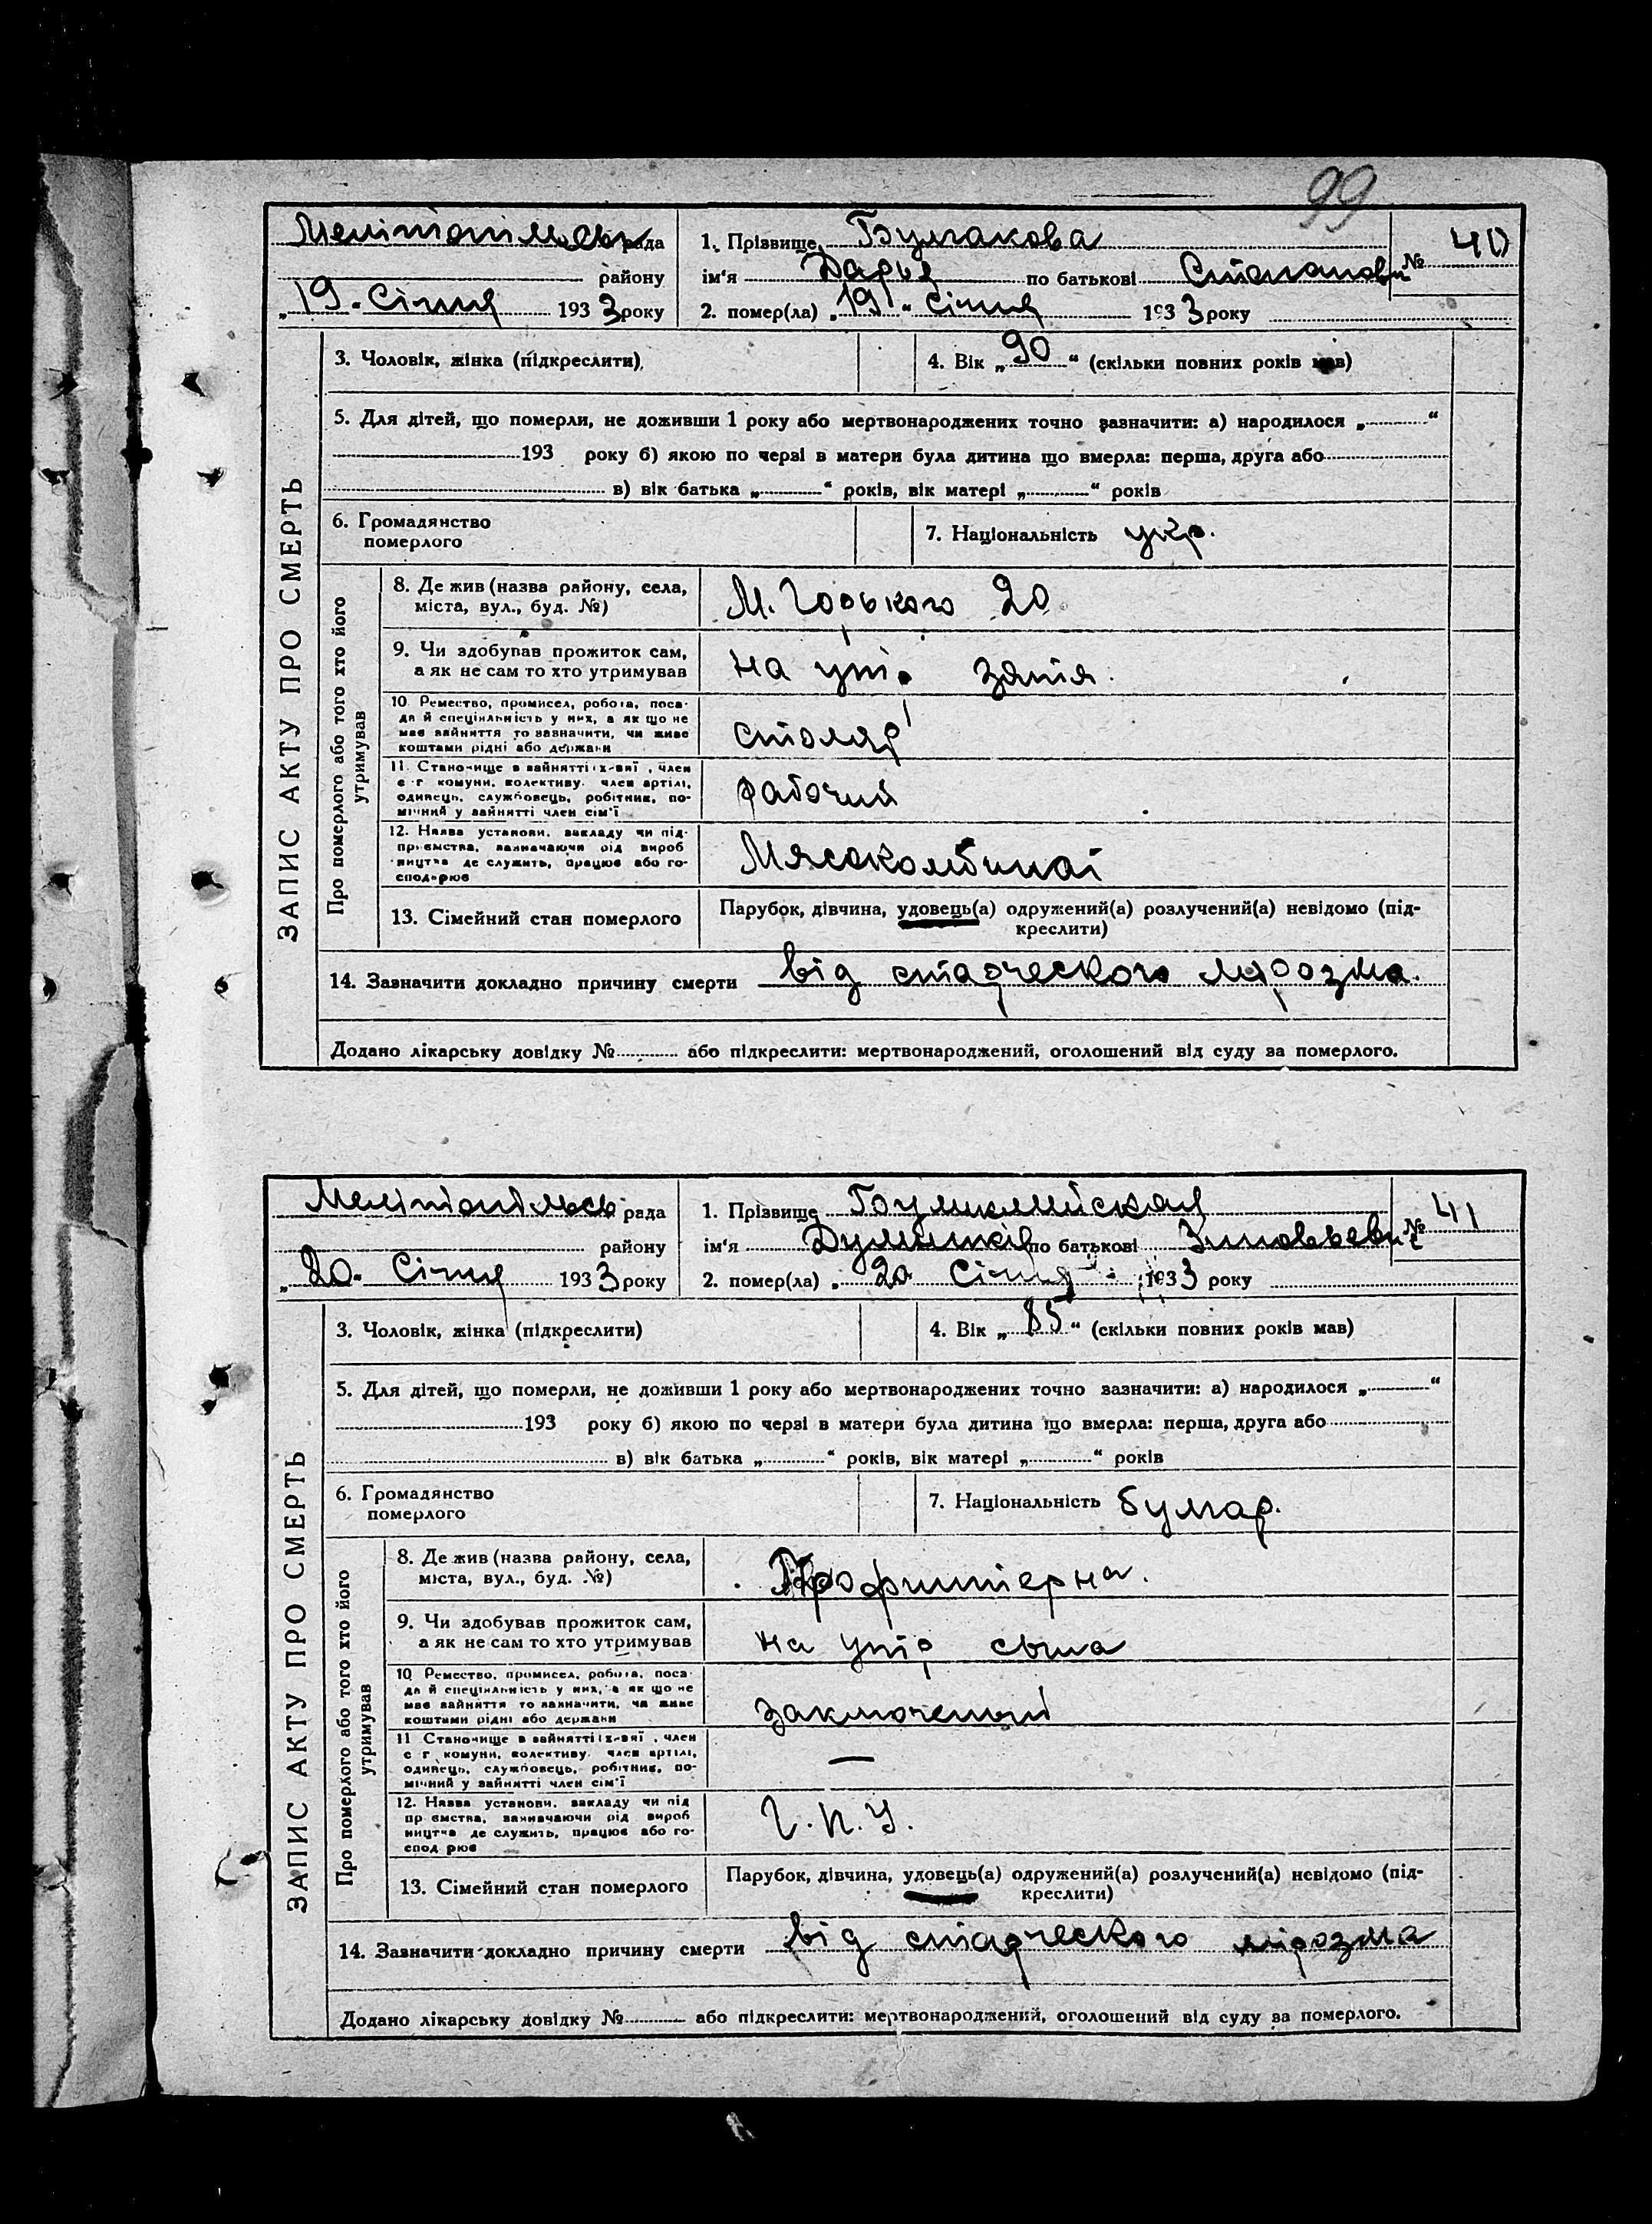 99
Мелітопільськ рада
району
„19" Січня 1933 року
1. Прізвище Булгакова
ім'я Дарья по батькові Степановн
№ 40
2. помер(ла) „19" Січня 1933 року
3. Чоловік, жінка (підкреслити)
4. Вік „90" (скільки повних років мав)
5. Для дітей, що померли, не доживши 1 року або мертвонароджених точно зазначити: а) народилося „ “
193 року б) якою по черзі в матери була дитина що вмерла: перша, друга або
в) вік батька „ “ років, вік матері „ “ років
6. Громадянство
померлого
7. Національність укр.
ЗАПИС АКТУ ПРО СМЕРТЬ
Про померлого або того хто його
утримував
8. Де жив (назва району, села,
міста, вул., буд. №)
М. Горького 20
9. Чи здобував прожиток сам,
а як не сам то хто утримував
на утр. зятя.
10 Ремество, промисел, робота, поса-
да й спеціяльність у них, а як що не
має зайняття то зазначити, чи живе
коштами рідні або держави
столяр
11. Становище в зайнятті: х-ві , член
с г комуни, колективу, член артілі,
одинець, службовець, робітник, по-
мічний у зайнятті член сім'ї
рабочий
12. Назва установи, закладу чи під-
приємства, зазначаючи рід вироб
ництва де служить, працює або го-
сподарює
Мясокомбинат
13. Сімейний стан померлого
Парубок, дівчина, удовець(а) одружений(а) розлучений(а) невідомо (під-
креслити)
14. Зазначити докладно причину смерти від старческого марозма.
Додано лікарську довідку № або підкреслити: мертвонароджений, оголошений від суду за померлого.
Мелітопільськ рада
району
„20" Січня 1933 року
1. Прізвище
ім'я по батькові Зиновьевич
№ 41
2. помер(ла) „20 Січня 1933 року
3. Чоловік, жінка (підкреслити)
4. Вік „85" (скільки повних років мав)
5. Для дітей, що померли, не доживши 1 року або мертвонароджених точно зазначити: а) народилося „ “
193 року б) якою по черзі в матери була дитина що вмерла: перша, друга або
в) вік батька „ “ років, вік матері „ “ років
6. Громадянство
померлого
7. Національність булгар.
ЗАПИС АКТУ ПРО СМЕРТЬ
Про померлого або того хто його
утримував
8. Де жив (назва району, села,
міста, вул., буд. №)
Профинтерна.
9. Чи здобував прожиток сам,
а як не сам то хто утримував
на утр сына
10 Ремество, промисел, робота, поса-
да й спеціяльність у них, а як що не
має зайняття то зазначити, чи живе
коштами рідні або держави
заключеный
11 Становище в зайнятті: х-ві , член
с г комуни, колективу, член артілі,
одинець, службовець, робітник, по-
мічний у зайнятті член сім'ї
—
12. Назва установи, закладу чи під
приємства, зазначаючи рід вироб
ництва де служить, працює або го-
сподарює
Г.П.У.
13. Сімейний стан померлого
Парубок, дівчина, удовець(а) одружений(а) розлучений(а) невідомо (під-
креслити)
14. Зазначити докладно причину смерти від старческого мірозма
Додано лікарську довідку № або підкреслити: мертвонароджений, оголошений від суду за померлого.